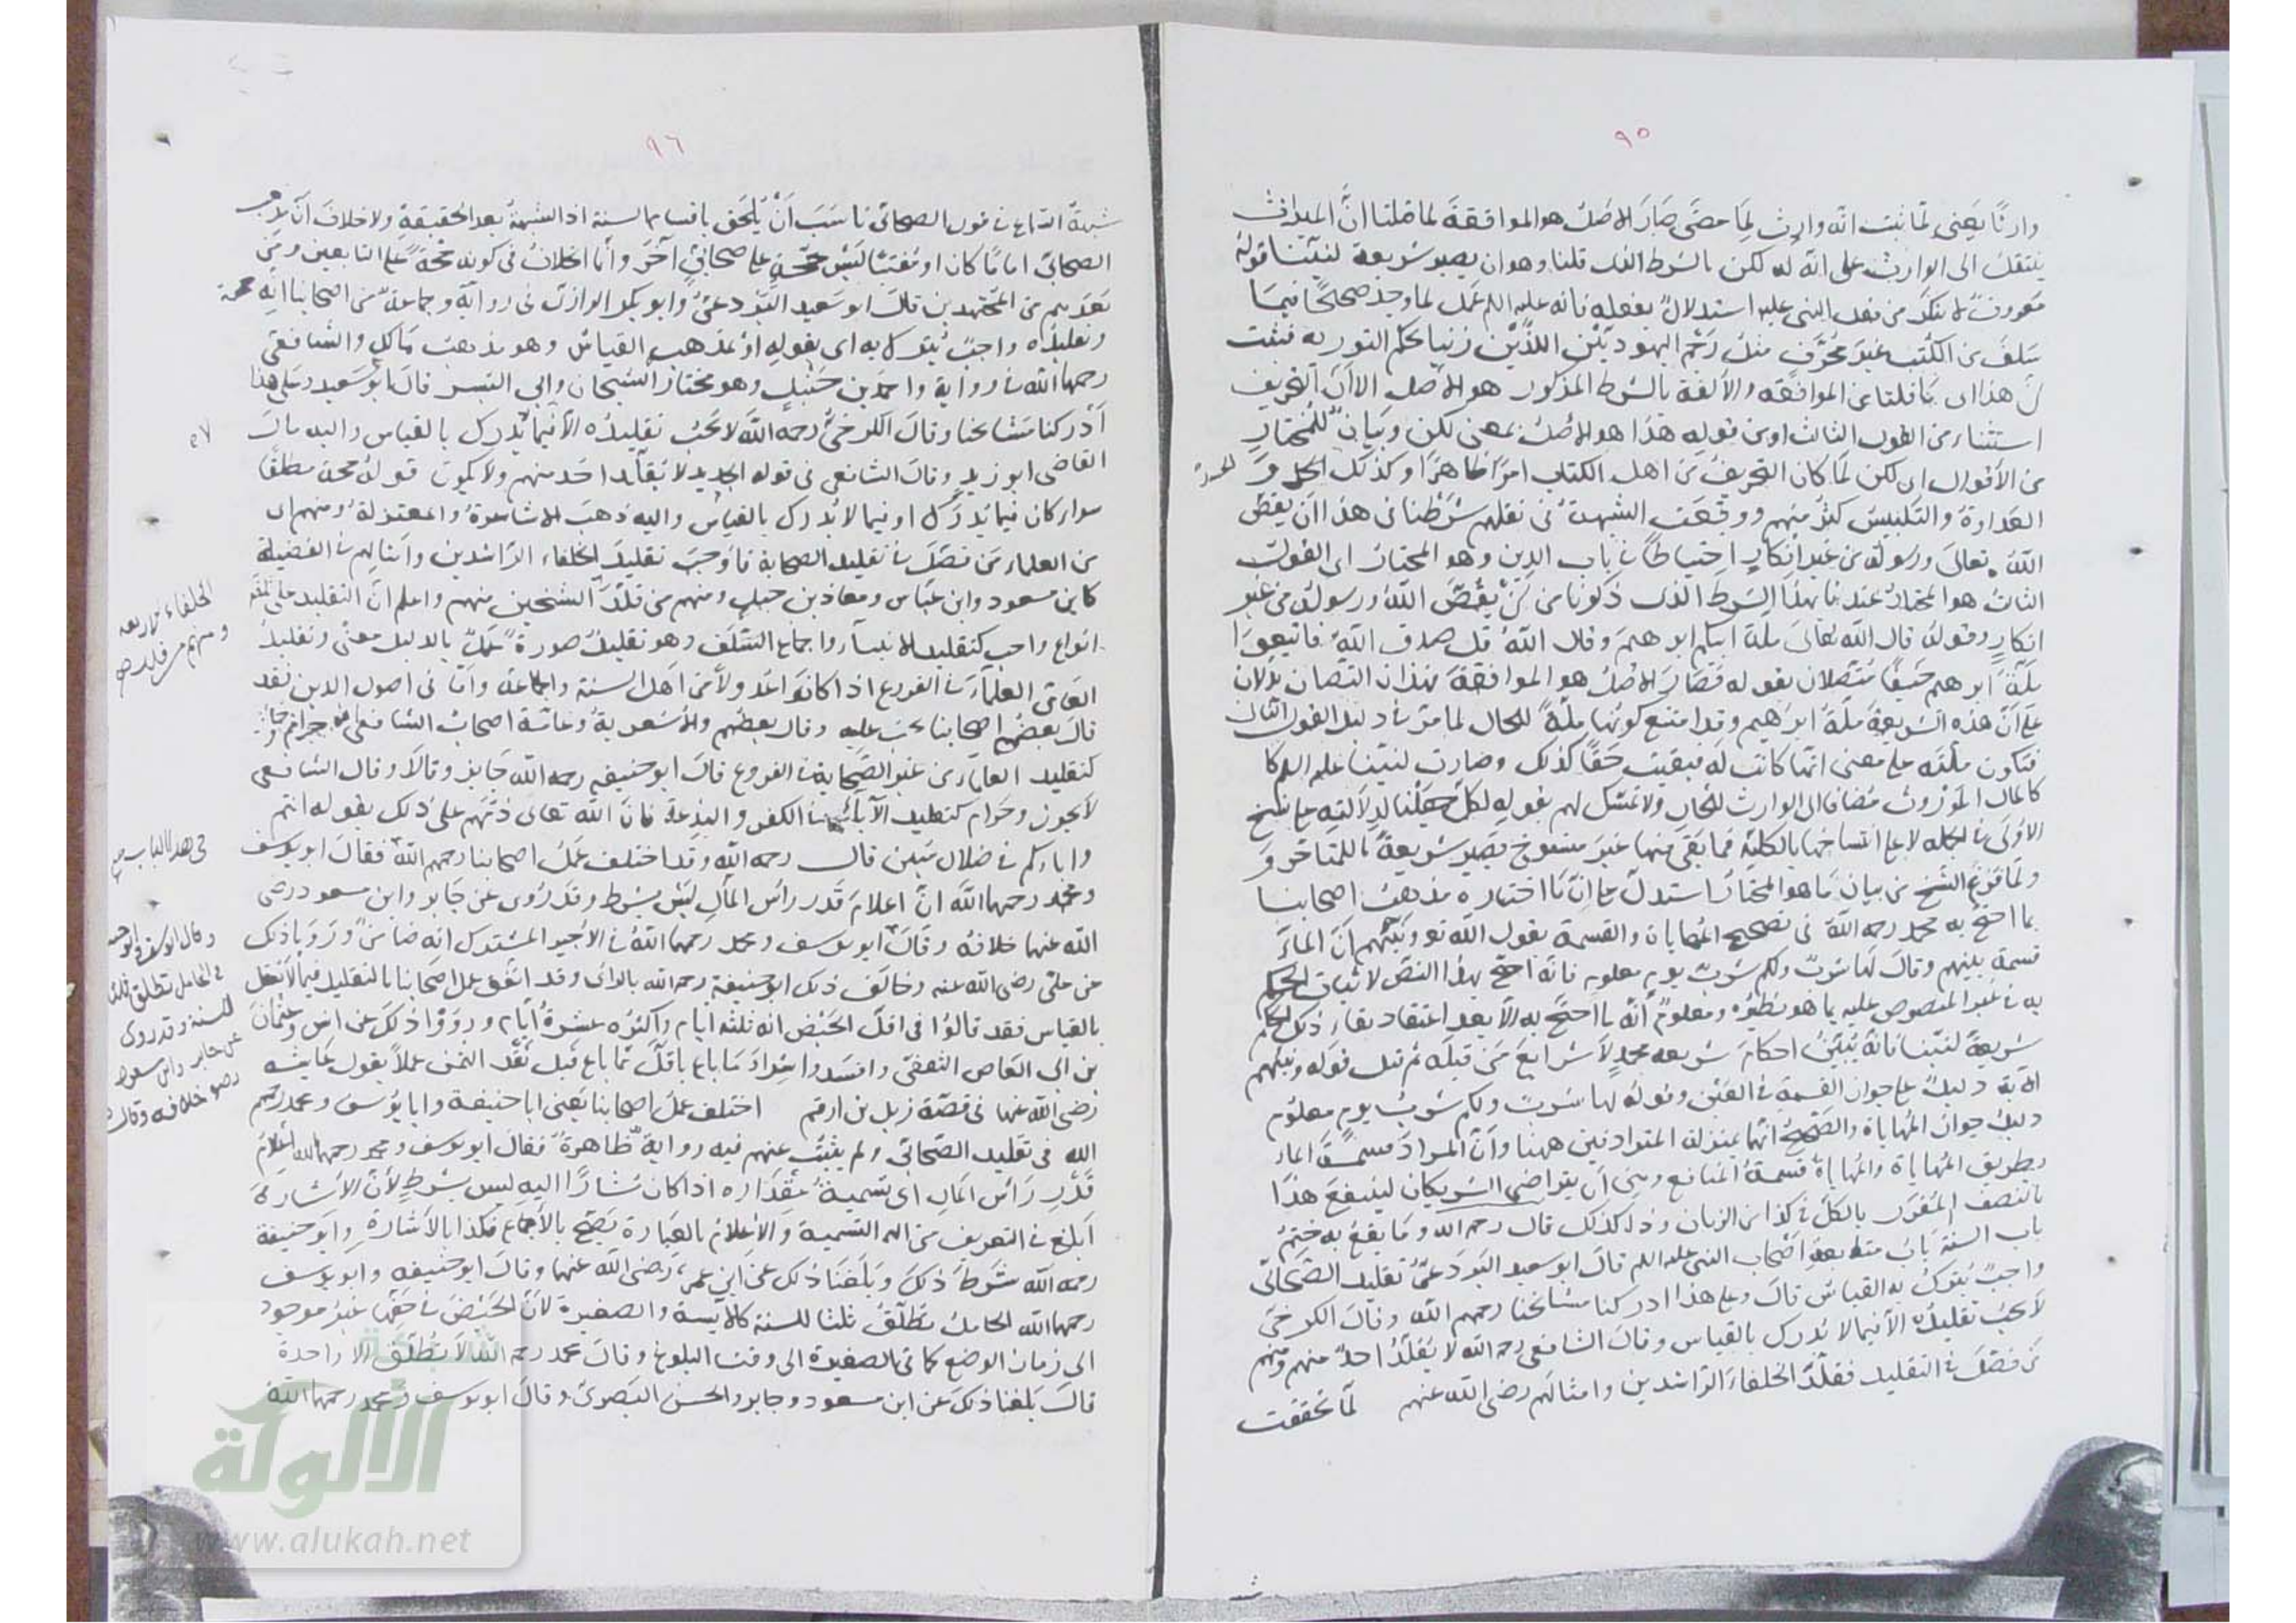 ٩٥
وارثًا يعنى لما ثبت انه وارث لما مضى صار الاصل هو الموافقة لما قلنا ان الميراث
ينتقل الى الوارث على انه له لكن بالشرط الذى قلنا وهو ان يصير شريعة لنبينا قوله
معروف لا ينكر من فعل النبى عليه استدلال بفعله فانه عليه السلم عمل لما وجد صحيحًا فيما
سلف من الكتب غير محرف مثل رجم اليهوديين اللذين زنيا بحكم التورية فثبت
ان هذا اى ما قلنا من الموافقة والالفة بالشرط المذكور هو الاصل الا ان التحريف
استثناء من القول الثالث او من قوله هذا هو الاصل بمعنى لكن وبيان للمختار
من الاقوال اى لكن لما كان التحريف من اهل الكتاب امرًا ظاهرًا وكذلك الحسد و
العداوة والتلبيس كثر منهم ووقعت الشبهة فى نقلهم شرطنا فى هذا ان يقص
الله تعالى ورسوله من غير انكار احتياطًا فى باب الدين وهو المختار اى القول
الثالث هو المختار عندنا بهذا الشرط الذى ذكرنا من ان يقص الله ورسوله من غير
انكار وقوله قال الله تعالى ملة ابيكم ابرهيم وقال الله قل صدق الله فاتبعوا
ملة ابرهيم حنيفًا متصلان بقوله فصار الاصل هو الموافقة فهذان النصان يدلان
على ان هذه الشريعة ملة ابرهيم وقد امتنع كونها ملة للحال لما مر فى دليل القول الثانى
فتكون ملته على معنى انها كانت له فبقيت حقًا كذلك وصارت لنبينا عليه السلم
كالمال الموروث مضاف الى الوارث للحال ولا تمسك لهم بقوله لكل جعلنا لدلالته على نسخ
الاولى فى الجملة لا على انتساخها بالكلية فما بقى منها غير منسوخ يصير شريعة للمتأخر و
ولما فرغ الشيخ من بيان ما هو المختار استدل على ان ما اختاره مذهب اصحابنا
بما احتج به محمد رحمه الله فى تصحيح المهاياة والقسمة بقول الله تع ونبئهم ان الماء
قسمة بينهم وقال لها شرب ولكم شرب يوم معلوم فانه احتج بهذا النص لاثبات الحكم
به فى غير المنصوص عليه بما هو نظيره ومعلوم انه ما احتج به الا بعد اعتقاد بقاء ذلك الحكم
شريعة لنبينا فانه يبين احكام شريعة محمد لا شرايع من قبله ثم قيل قوله ونبئهم
الاية دليل على جواز القسمة فى العين وقوله لها شرب ولكم شرب يوم معلوم
دليل جواز المهاياة والصحيح انهما بمنزلة المترادفين ههنا وان المراد قسمة الماء
بطريق المهاياة والمهاياة قسمة المنافع وهى ان يتراضى الشريكان لينتفع هذا
بالنصف المفرز بالكل فى كذا من الزمان وذلك كذلك قال رحمه الله وما يقع به ختم
باب السنة باب متابعة اصحاب النبى عليه السلم قال ابو سعيد البردعى تقليد الصحابى
واجب يترك به القياس قال وعلى هذا ادركنا مشايخنا رحمهم الله وقال الكرخى
لا يجب تقليده الا فيما لا يدرك بالقياس وقال الشافعى رحمه الله لا يقلد احد منهم ومنهم
من فصل فى التقليد فقلد الخلفاء الراشدين وامثالهم رضى الله عنهم لما تحققت
٩٦
شبهة السماع فى قول الصحابى ناسب ان يلحق باقسام السنة اذ الشبهة بعد الحقيقة ولا خلاف ان مذهب
الصحابى امامًا كان او مفتيًا ليس بحجة على صحابى آخر وانما الخلاف فى كونه حجة على التابعين ومن
بعدهم من المجتهدين قال ابو سعيد البردعى وابو بكر الرازى فى رواية وجماعة من اصحابنا انه حجة
وتقليده واجب يترك به اى بقوله او بمذهبه القياس وهو مذهب مالك والشافعى
رحمهما الله فى رواية واحمد بن حنبل وهو مختار الشيخان وابى اليسر قال ابو سعيد وعلى هذا
ادركنا مشايخنا وقال الكرخى رحمه الله لا يجب تقليده الا فيما لا يدرك بالقياس واليه مال
القاضى ابو زيد وقال الشافعى فى قوله الجديد لا يقلد احد منهم ولا يكون قوله حجة مطلقًا
سواء كان فيما يدرك او فيما لا يدرك بالقياس واليه ذهب الاشاعرة والمعتزلة ومنهم اى
من العلماء من فصل فى تقليد الصحابة فاوجب تقليد الخلفاء الراشدين وامثالهم فى الفضيلة
كابن مسعود وابن عباس ومعاذ بن جبل ومنهم من قلد الشيخين منهم واعلم ان التقليد على
انواع واجب كتقليد الانبياء واجماع السلف وهو تقليد صورة عمل بالدليل معنى وتقليد
العامى العلماء فى الفروع اذا كانوا عدولا من اهل السنة والجماعة واما فى اصول الدين فقد
قال بعض اصحابنا يجب عليه وقال بعضهم والاشعرية وعامة اصحاب الشافعى هو حرام وجائز
كتقليد العلماء من غير الصحابة فى الفروع قال ابو حنيفه رحمه الله جايز وقالا وقال الشافعى
لا يجوز وحرام كتقليد الآباء فى الكفر والبدعة فان الله تعالى ذمهم على ذلك بقوله انتم
واباؤكم فى ضلال مبين قال رحمه الله وقد اختلف عمل اصحابنا رحمهم الله فقال ابو يوسف
ومحمد رحمهما الله ان اعلام قدر راس المال ليس بشرط وقد روى عن جابر وابن مسعود رضى
الله عنهما خلافه وقال ابو يوسف ومحمد رحمهما الله فى الاجير المشترك انه ضامن ورويا ذلك
عن على رضى الله عنه وخالف ذلك ابو حنيفة رحمه الله بالراى وقد اتفق عمل اصحابنا بالتقليد فيما لا يعقل
بالقياس فقد قالوا فى اقل الحيض انه ثلثة ايام واكثره عشرة ايام ورووا ذلك عن انس وعثمان
بن ابى العاص الثقفى وافسدوا شراء ما باع باقل مما باع قبل نقد الثمن عملا بقول عايشه
رضى الله عنها فى قصة زيد بن ارقم اختلف عمل اصحابنا يعنى ابا حنيفة وابا يوسف ومحمد رحمهم
الله فى تقليد الصحابى ولم يثبت عنهم فيه رواية ظاهرة فقال ابو يوسف ومحمد رحمهما الله اعلام
قدر راس المال اى تسمية مقداره اذا كان مشارًا اليه ليس بشرط لان الاشارة
ابلغ فى التعريف من التسمية والاعلام بالعبارة يصح بالاجماع فكذا بالاشارة وابو حنيفة
رحمه الله شرط ذلك وبلغنا ذلك عن ابن عمر رضى الله عنهما وقال ابو حنيفه وابو يوسف
رحمهما الله الحامل تطلق ثلثا للسنة كالايسة والصغيرة لان الحيض فى حقها غير موجود
الى زمان الوضع كما فى الصغيرة الى وقت البلوغ وقال محمد رحمه الله لا تطلق الا واحدة
قال بلغنا ذلك عن ابن مسعود وجابر والحسن البصرى وقال ابو يوسف ومحمد رحمهما الله
الخلفاء الاربعه
ومنهم من قلد
فى هذا الباب
وقال ابو حنيفة وابو يوسف
فى الحامل تطلق ثلثا
للسنة وقد روى
عن جابر وابن مسعود
رضى خلافه وقال
الألوكة
www.alukah.net